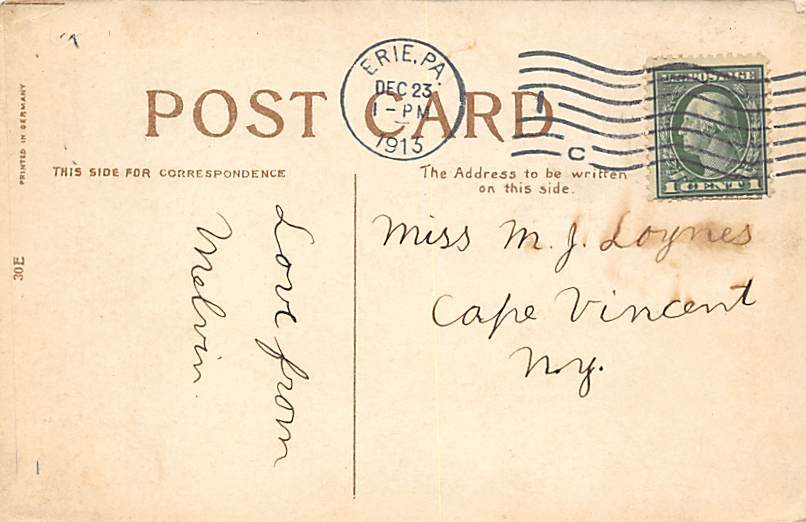 POST CARD
ERIE, PA.
DEC 23
1 - PM
1913
1
C
U.S. POSTAGE
1 CENT 1
PRINTED IN GERMANY
30E
THIS SIDE FOR CORRESPONDENCE
The Address to be written
on this side.
Love from
Melvin.
Miss M. J. Loynes
Cape Vincent
N.Y.